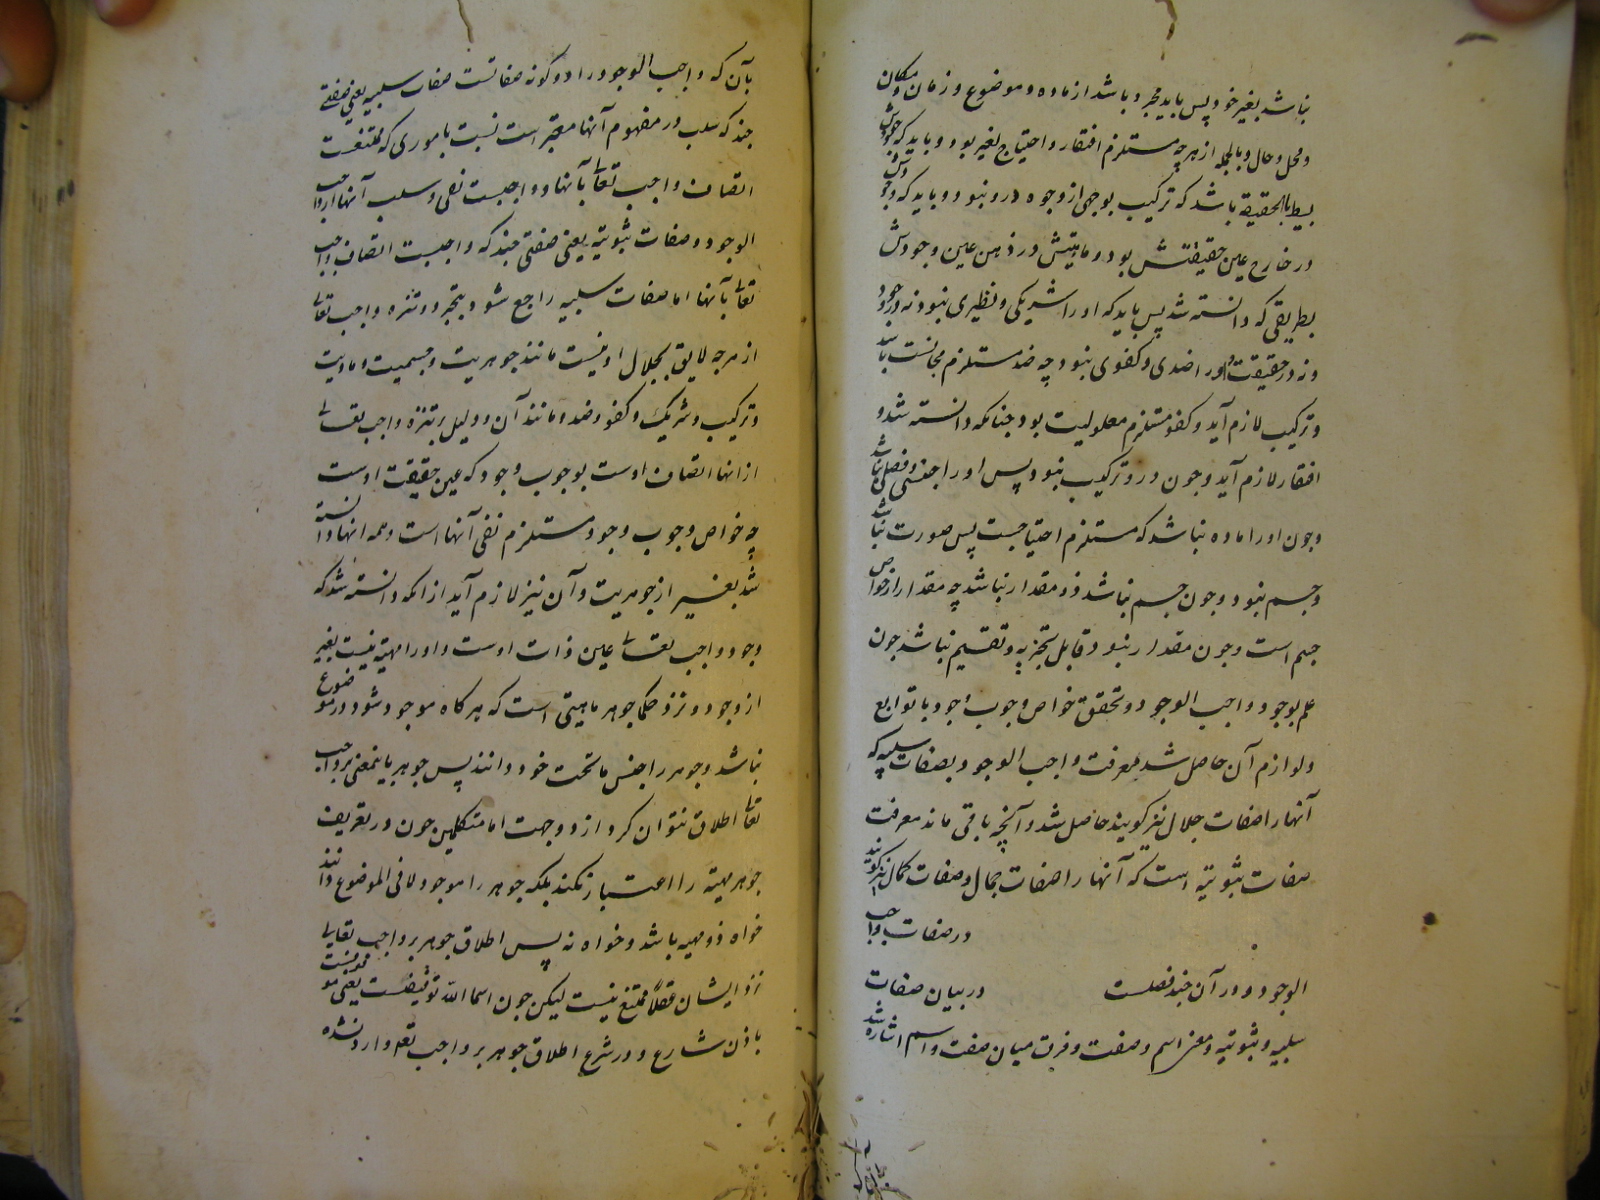 نباشد بغیر خود پس باید مجرد باشد از ماده و موضوع و زمان و مکان
و محل و حال و بالجمله از هر چه مستلزم افتقار و احتیاج بغیر بود و باید که خودش
بسیط الحقیقه باشد که ترکیب بوجهی از وجوه درو نبود و باید که وجودش
در خارج عین حقیقتش بود و ماهیتش در ذهن عین وجودش
بطریقی که دانسته شد پس باید که او را شریکی و نظیری نبود نه در وجود
و نه در حقیقت و او را ضدی و کفوی نبود چه ضد مستلزم مجانست باشد
و ترکیب لازم آید و کفو مستلزم معلولیت بود چنانکه دانسته شد و
افتقار لازم آید و چون درو ترکیب نبود پس او را جنسی و فصلی نباشد
و چون او را ماده نباشد که مستلزم احتیاجست پس صورت نباشد
و جسم نبود و چون جسم نباشد ذو مقدار نباشد چه مقدار از خواص
جسم است و چون مقدار نبود قابل تجزیه و تقسیم نباشد چون
علم بوجود واجب الوجود و تحقق خواص وجوب وجود با توابع
و لوازم آن حاصل شد بمعرفت واجب الوجود بصفات سلبیه که
آنها را صفات جلال نیز کویند حاصل شد و آنچه باقی ماند معرفت
صفات ثبوتیه است که آنها را صفات جمال و صفات کمال نیز کویند
در صفات واجب
الوجود و در آن چند فصلست در بیان صفات
سلبیه و ثبوتیه و معنی اسم و صفت و فرق میان صفت و اسم اشاره شد
بآن که واجب الوجود را دو کونه صفاتست صفات سلبیه یعنی صفتی
چند که سلب در مفهوم آنها معتبر است نسبت باموری که ممتنعست
اتصاف واجب تعالی بآنها و واجبست نفی و سلب آنها از واجب
الوجود و صفات ثبوتیه یعنی صفتی چند که واجبست اتصاف واجب
تعالی بآنها اما صفات سلبیه راجع شود بتجرد و تنزه واجب تعالی
از هرچه لایق بجلال او نیست مانند جوهریت و جسمیت و مادیت
و ترکیب و شریک و کفو و ضد و مانند آن و دلیل بر تنزه واجب تعالی
از انها اتصاف اوست بوجوب وجود که عین حقیقت اوست
چه خواص وجوب وجود مستلزم نفی آنها است و همه انها دانسته
شد بغیر از جوهریت و آن نیز لازم آید از انکه دانسته شد که
وجود واجب تعالی عین ذات اوست و او را مهیة نیست بغیر
از وجود و نزد حکما جوهر ماهیتی است که هر کاه موجود شود در موضوع
نباشد و جوهر را جنس ماتحت خود دانند پس جوهر باینمعنی بر واجب
تعالی اطلاق نتوان کرد از دو جهت اما متکلمین چون در تعریف
جوهر مهیة را اعتبار نکنند بلکه جوهر را موجود لا فی الموضوع دانند
خواه ذو مهیه باشد و خواه نه پس اطلاق جوهر بر واجب تعالی
نزد ایشان عقلاً ممتنع نیست لیکن چون اسماء الله توقیفیست یعنی موقوفست
باذن شارع و در شرع اطلاق جوهر بر واجب تعالی وارد نشده